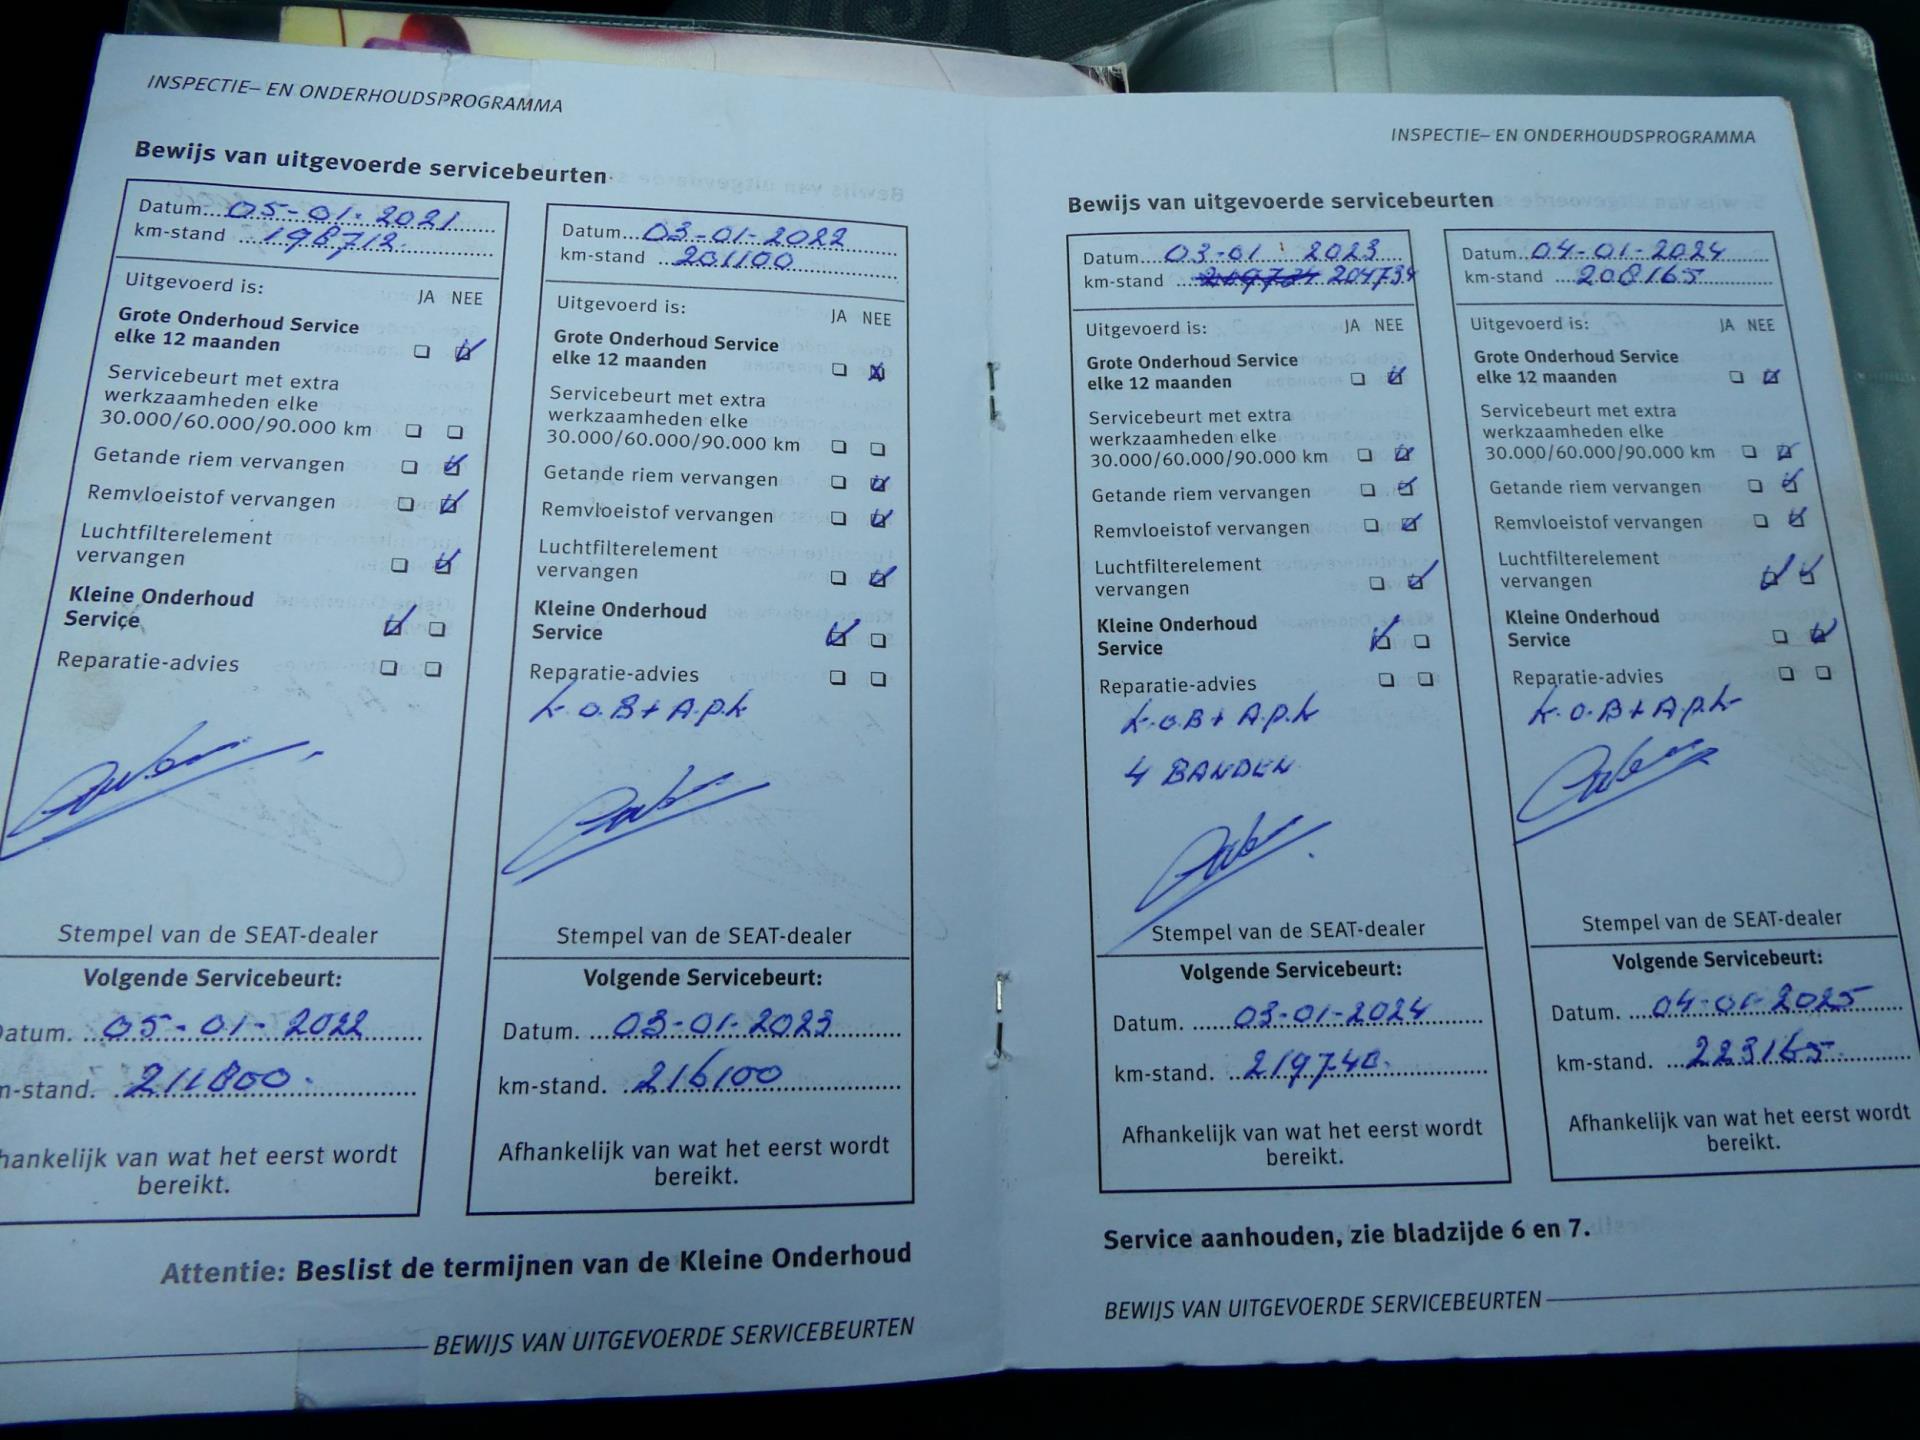 INSPECTIE– EN ONDERHOUDSPROGRAMMA
Bewijs van uitgevoerde servicebeurten
Datum...05-01-2021
km-stand ...198712
Uitgevoerd is:
JA NEE
Grote Onderhoud Service
elke 12 maanden
Servicebeurt met extra
werkzaamheden elke
30.000/60.000/90.000 km
Getande riem vervangen
Remvloeistof vervangen
Luchtfilterelement
vervangen
Kleine Onderhoud
Service
Reparatie-advies
Stempel van de SEAT-dealer
Volgende Servicebeurt:
atum. ...05-01-2022
m-stand. ...211800
hankelijk van wat het eerst wordt
bereikt.
Datum...03-01-2022
km-stand ...201100
Uitgevoerd is:
JA NEE
Grote Onderhoud Service
elke 12 maanden
Servicebeurt met extra
werkzaamheden elke
30.000/60.000/90.000 km
Getande riem vervangen
Remvloeistof vervangen
Luchtfilterelement
vervangen
Kleine Onderhoud
Service
Reparatie-advies
K.O.B + A.P.K
Stempel van de SEAT-dealer
Volgende Servicebeurt:
Datum. ...03-01-2023
km-stand. ...216100
Afhankelijk van wat het eerst wordt
bereikt.
Attentie: Beslist de termijnen van de Kleine Onderhoud
BEWIJS VAN UITGEVOERDE SERVICEBEURTEN
INSPECTIE– EN ONDERHOUDSPROGRAMMA
Bewijs van uitgevoerde servicebeurten
Datum...03-01 2023
km-stand ...204734
Uitgevoerd is:
JA NEE
Grote Onderhoud Service
elke 12 maanden
Servicebeurt met extra
werkzaamheden elke
30.000/60.000/90.000 km
Getande riem vervangen
Remvloeistof vervangen
Luchtfilterelement
vervangen
Kleine Onderhoud
Service
Reparatie-advies
K.O.B + A.P.K
4 BANDEN
Stempel van de SEAT-dealer
Volgende Servicebeurt:
Datum. ...03-01-2024
km-stand. ...219740
Afhankelijk van wat het eerst wordt
bereikt.
Datum...04-01-2024
km-stand ...208165
Uitgevoerd is:
JA NEE
Grote Onderhoud Service
elke 12 maanden
Servicebeurt met extra
werkzaamheden elke
30.000/60.000/90.000 km
Getande riem vervangen
Remvloeistof vervangen
Luchtfilterelement
vervangen
Kleine Onderhoud
Service
Reparatie-advies
K.O.B + A.P.K
Stempel van de SEAT-dealer
Volgende Servicebeurt:
Datum. ...04-01-2025
km-stand. ...223165
Afhankelijk van wat het eerst wordt
bereikt.
Service aanhouden, zie bladzijde 6 en 7.
BEWIJS VAN UITGEVOERDE SERVICEBEURTEN